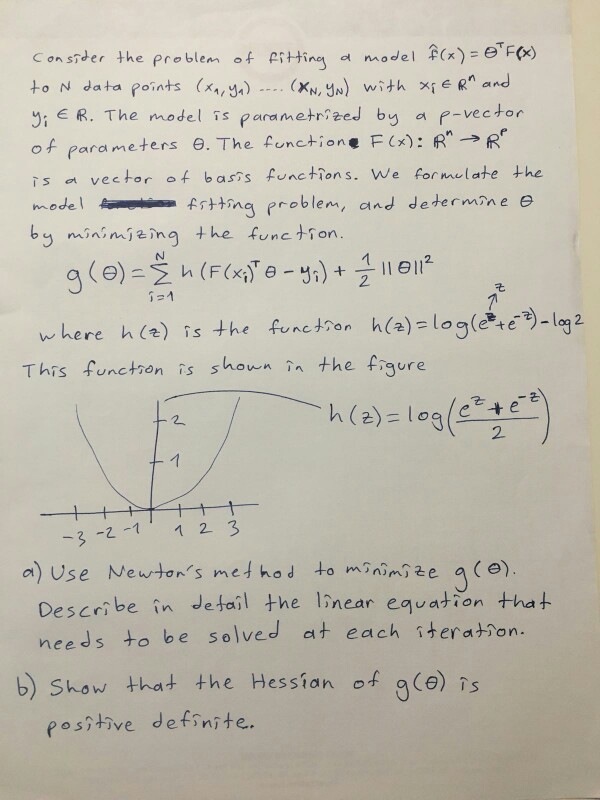 Consider the problem of fitting a model f̂(x) = θᵀF(x)
to N data points (x₁, y₁) .... (x_N, y_N) with xᵢ ∈ Rⁿ and
yᵢ ∈ R. The model is parametrized by a p-vector
of parameters θ. The function F(x): Rⁿ → Rᵖ
is a vector of basis functions. We formulate the
model fitting problem, and determine θ
by minimizing the function.
g(θ) = Σᵢ₌₁ᴺ h(F(xᵢ)ᵀθ - yᵢ) + 1/2 ||θ||²
z
where h(z) is the function h(z) = log(eᶻ + e⁻ᶻ) - log2
This function is shown in the figure
h(z) = log((eᶻ + e⁻ᶻ)/2)
2
1
-3 -2 -1 1 2 3
a) Use Newton's method to minimize g(θ).
Describe in detail the linear equation that
needs to be solved at each iteration.
b) Show that the Hessian of g(θ) is
positive definite.